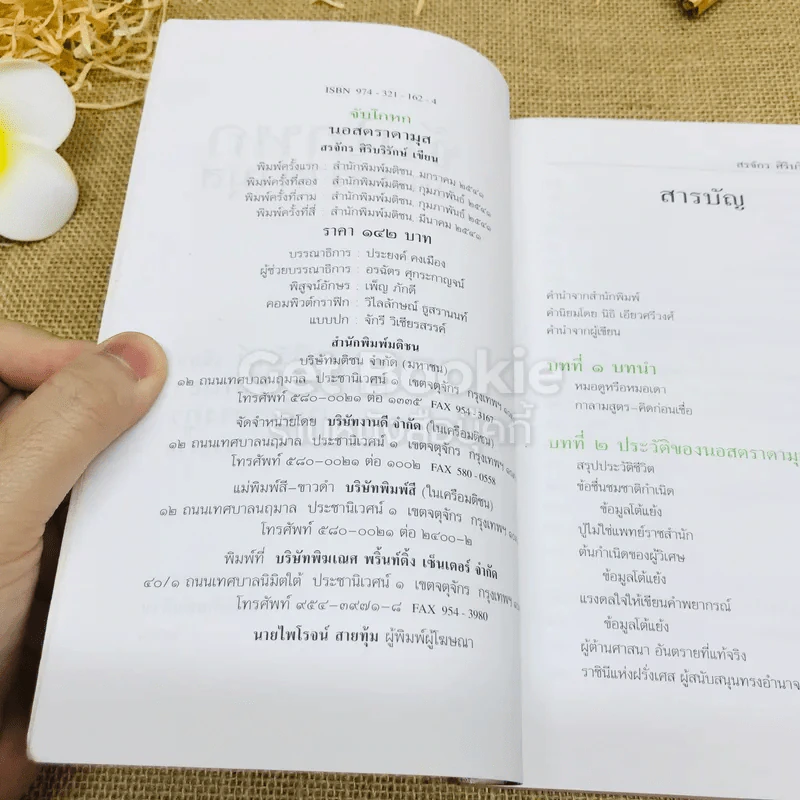 ISBN 974 - 321 - 162 - 4
จับโกหก
นอสตราดามุส
สรจักร ศิริบริรักษ์ เขียน
พิมพ์ครั้งแรก : สำนักพิมพ์มติชน, มกราคม ๒๕๔๑
พิมพ์ครั้งที่สอง : สำนักพิมพ์มติชน, กุมภาพันธ์ ๒๕๔๑
พิมพ์ครั้งที่สาม : สำนักพิมพ์มติชน, กุมภาพันธ์ ๒๕๔๑
พิมพ์ครั้งที่สี่ : สำนักพิมพ์มติชน, มีนาคม ๒๕๔๑
ราคา ๑๔๒ บาท
บรรณาธิการ : ประยงค์ คงเมือง
ผู้ช่วยบรรณาธิการ : อรฉัตร ศุกระกาญจน์
พิสูจน์อักษร : เพ็ญ ภักดี
คอมพิวต์กราฟิก : วิไลลักษณ์ ธูสรานนท์
แบบปก : จักรี วิเชียรสรรค์
สำนักพิมพ์มติชน
บริษัทมติชน จำกัด (มหาชน)
๑๒ ถนนเทศบาลนฤมาล ประชานิเวศน์ ๑ เขตจตุจักร กรุงเทพฯ
โทรศัพท์ ๕๘๐-๐๐๒๑ ต่อ ๑๓๓๕ FAX 954-3167
จัดจำหน่ายโดย บริษัทงานดี จำกัด (ในเครือมติชน)
๑๒ ถนนเทศบาลนฤมาล ประชานิเวศน์ ๑ เขตจตุจักร กรุงเทพฯ
โทรศัพท์ ๕๘๐-๐๐๒๑ ต่อ ๑๐๐๒ FAX 580-0558
แม่พิมพ์สี-ขาวดำ บริษัทพิมพ์สี (ในเครือมติชน)
๑๒ ถนนเทศบาลนฤมาล ประชานิเวศน์ ๑ เขตจตุจักร กรุงเทพฯ
โทรศัพท์ ๕๘๐-๐๐๒๑ ต่อ ๒๔๐๐-๒
พิมพ์ที่ บริษัทพิฆเณศ พริ้นท์ติ้ง เซ็นเตอร์ จำกัด
๔๐/๑ ถนนเทศบาลนิมิตใต้ ประชานิเวศน์ ๑ เขตจตุจักร กรุงเทพฯ
โทรศัพท์ ๙๕๔-๓๙๗๑-๘ FAX 954-3980
นายไพโรจน์ สายทุ้ม ผู้พิมพ์ผู้โฆษณา
Get Bookie
ร้านหนังสือเก็ทบุ๊คกี้
สรจักร
สารบัญ
คำนำจากสำนักพิมพ์
คำนิยมโดย นิธิ เอียวศรีวงศ์
คำนำจากผู้เขียน
บทที่ ๑ บทนำ
หมอดูหรือหมอเดา
กาลามสูตร-คิดก่อนเชื่อ
บทที่ ๒ ประวัติของนอสตราดามุส
สรุปประวัติชีวิต
ข้อชื่นชมชาติกำเนิด
ข้อมูลโต้แย้ง
ปู่ไม่ใช่แพทย์ราชสำนัก
ต้นกำเนิดของผู้วิเศษ
ข้อมูลโต้แย้ง
แรงดลใจให้เขียนคำพยากรณ์
ข้อมูลโต้แย้ง
ผู้ต้านศาสนา อันตรายที่แท้จริง
ราชินีแห่งฝรั่งเศส ผู้สนับสนุนทรงอำนาจ